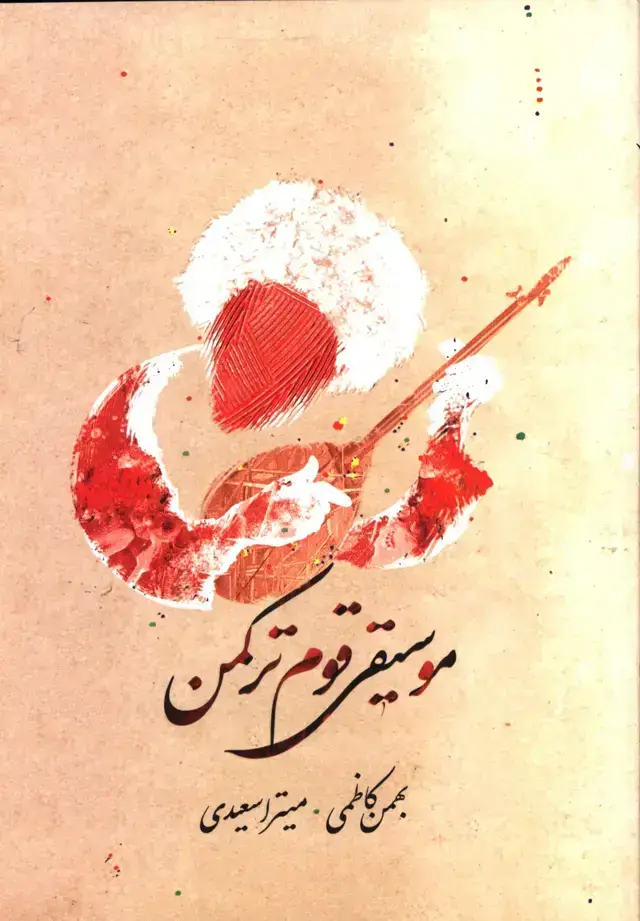 موسیقی قوم ترکمن
بهمن کاظمی . میترا سعیدی